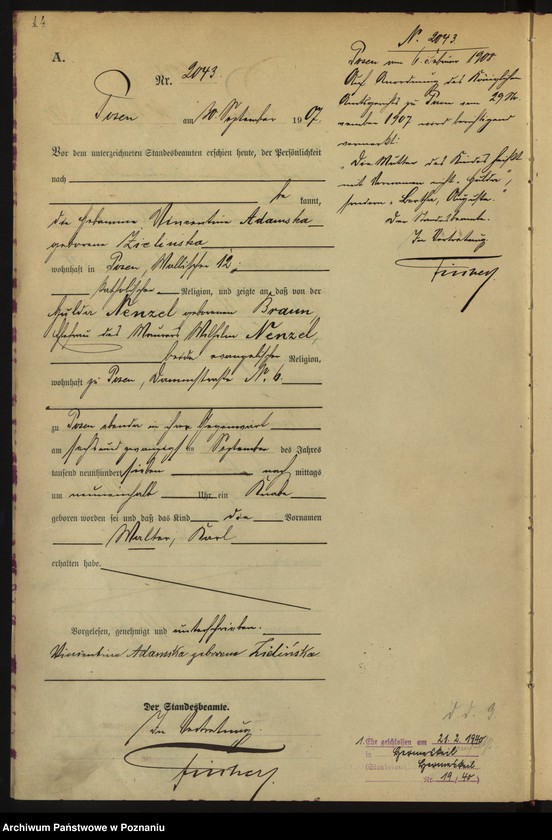 14
A.
Nr. 2043.
Posen am 30. September 1907.
Vor dem unterzeichneten Standesbeamten erschien heute, der Persönlichkeit
nach
be kannt,
die Hebamme Vincentine Adamska
geborene Zielinska
wohnhaft in Posen, Wallischei 12,
katholischer Religion, und zeigte an, daß von der
Hulda Nenzel geborenen Braun,
Ehefrau des Maurers Wilhelm Nenzel,
beide evangelischer Religion,
wohnhaft zu Posen, Dammstraße No. 6.
zu Posen ebenda in ihrer Gegenwart
am sechsundzwanzigsten September des Jahres
tausend neunhundert sieben nach mittags
um neuneinhalb Uhr ein Knabe
geboren worden sei und daß das Kind die Vornamen
Walter, Karl
erhalten habe.
Vorgelesen, genehmigt und unterschrieben.
Vincentine Adamska geborene Zielińska
Der Standesbeamte.
In Vertretung.
N. 2043
Posen am 6. Februar 1908
Auf Anordnung des Königlichen
Amtsgerichts zu Posen vom 29. No
vember 1907 wird berichtigend
vermerkt:
"Die Mutter des Kindes heißt
mit Vornamen nicht "Hulda",
sondern "Bertha, Auguste.
Der Standesbeamte.
In Vertretung.
1. Ehe geschlossen am 21.2.1940
in
(Standesamt
Nr. 19/40)
Archiwum Państwowe w Poznaniu